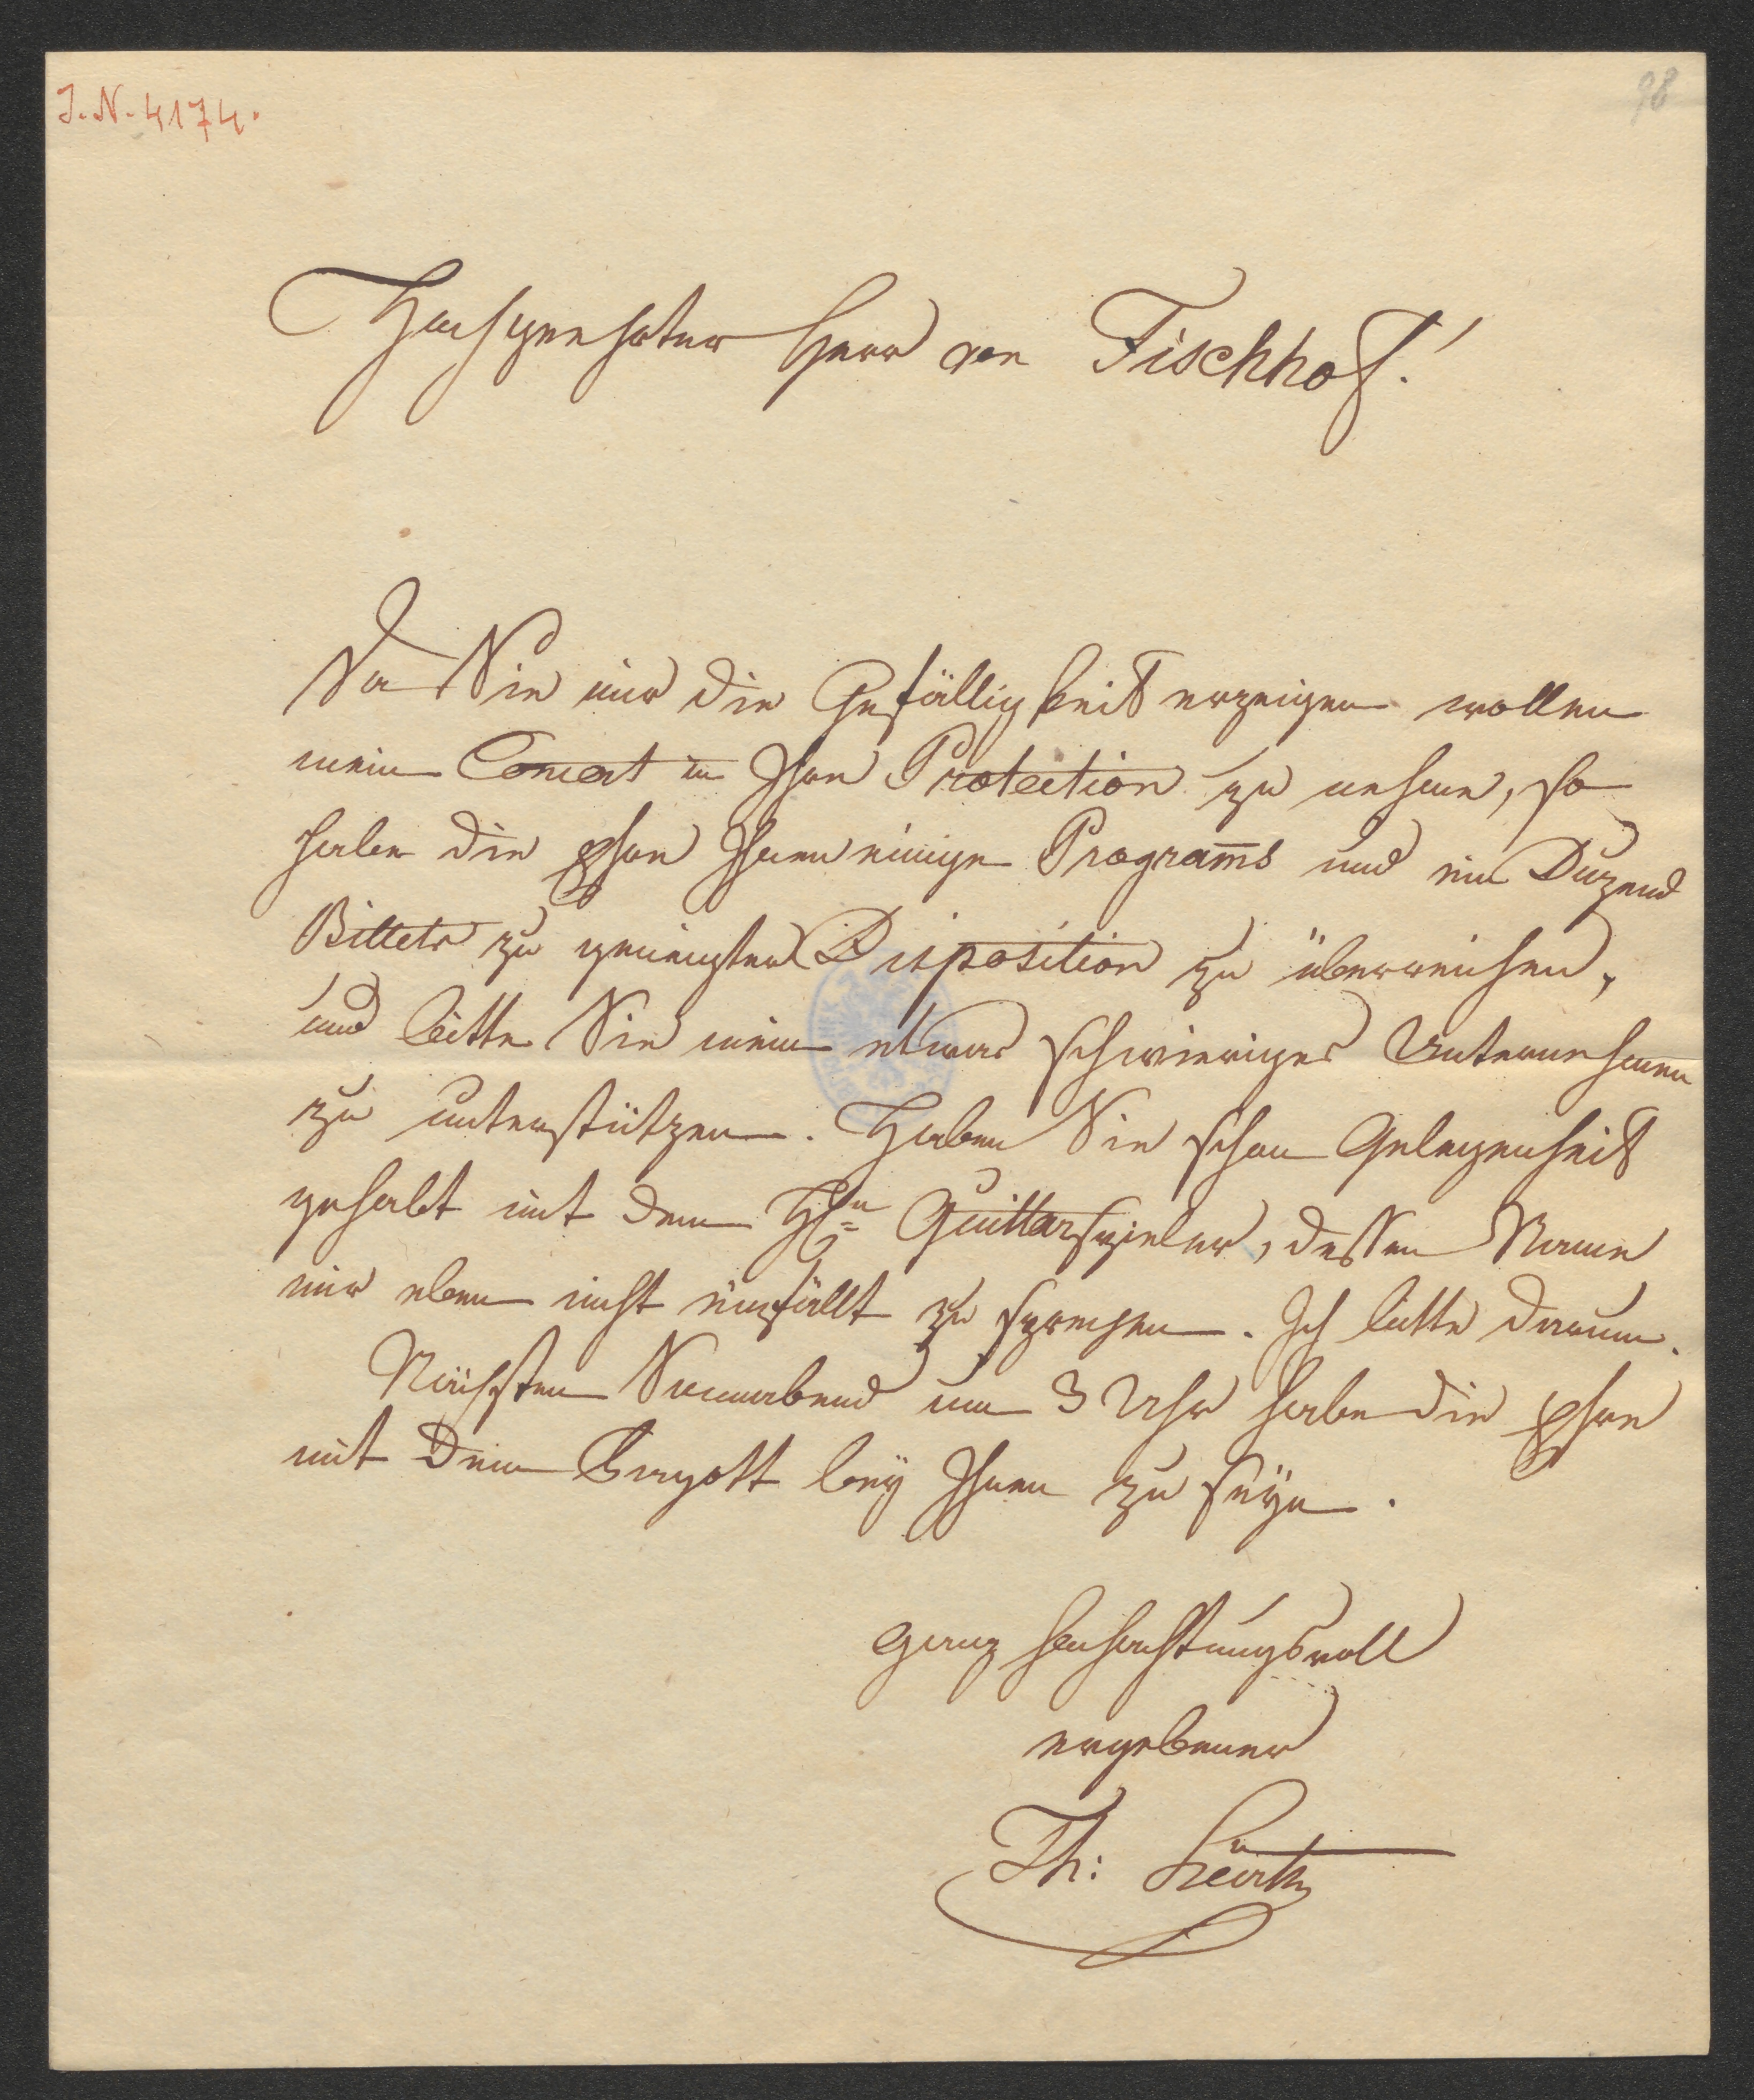 J. N. 4174.
98
Hochgeehrter Herr von Fischhof!
Da Sie mir die Gefälligkeit erzeigen wollen
mein Concert in Ihre Protection zu nehmen, so
habe die Ehre Ihnen einige Programs und ein Duzend
Billets zu geneigter Disposition zu überreichen,
und bitte Sie mein etwas schwieriges Unternehmen
zu unterstützen. Haben Sie schon Gelegenheit
gehabt mit dem Hrn Guittarspieler, dessen Name
mir eben nicht einfällt zu sprechen. Ich bitte darum.
Nächsten Sonnabend um 3 Uhr habe die Ehre
mit dem Fagott bey Ihnen zu seyn.
Ganz hochachtungsvoll
ergebener
Th: